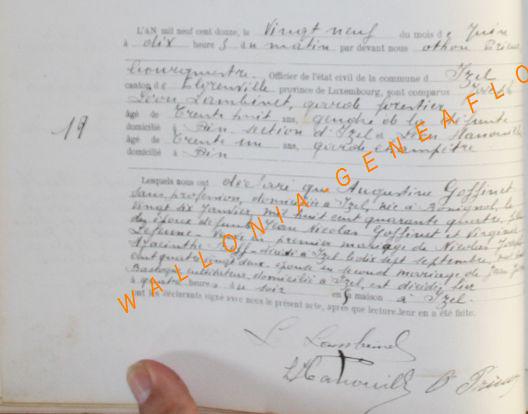 L'AN mil neuf cent douze, le Vingt neuf du mois de Juin
à dix heures du matin par devant nous Othon
Bourgmestre Officier de l'état civil de la commune d'Izel
canton de Florenville province de Luxembourg, sont comparus
Léon Lambinet, garde forestier
19
âgé de Trente huit ans, gendre de la défunte
domicilié à Pin section d'Izel & Léon Hanouille
âgé de Trente un ans, garde champêtre
domicilié à Pin
Lesquels nous ont déclaré que Augustine Goffinet
sans profession, domiciliée à Izel, née à
Vingt six Janvier, mil huit cent quarante quatre, fille
des époux défunts Jean Nicolas Goffinet et Virginie
Lejeune en premier mariage de Nicolas
Hyacinthe décédé à Izel le dix sept septembre, mil huit
cent quatre vingt deux épouse en second mariage de Jean
cultivateur, domiciliée à Izel, est décédée hier
à quatre heures du soir en sa maison à Izel.
ont les déclarants signé avec nous le présent acte, après que lecture leur en a été faite.
L. Lambinet
L. Hanouille
WALLONIA GENEAFLO